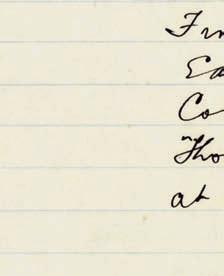 Fr
Ea
Co
"Tho
at